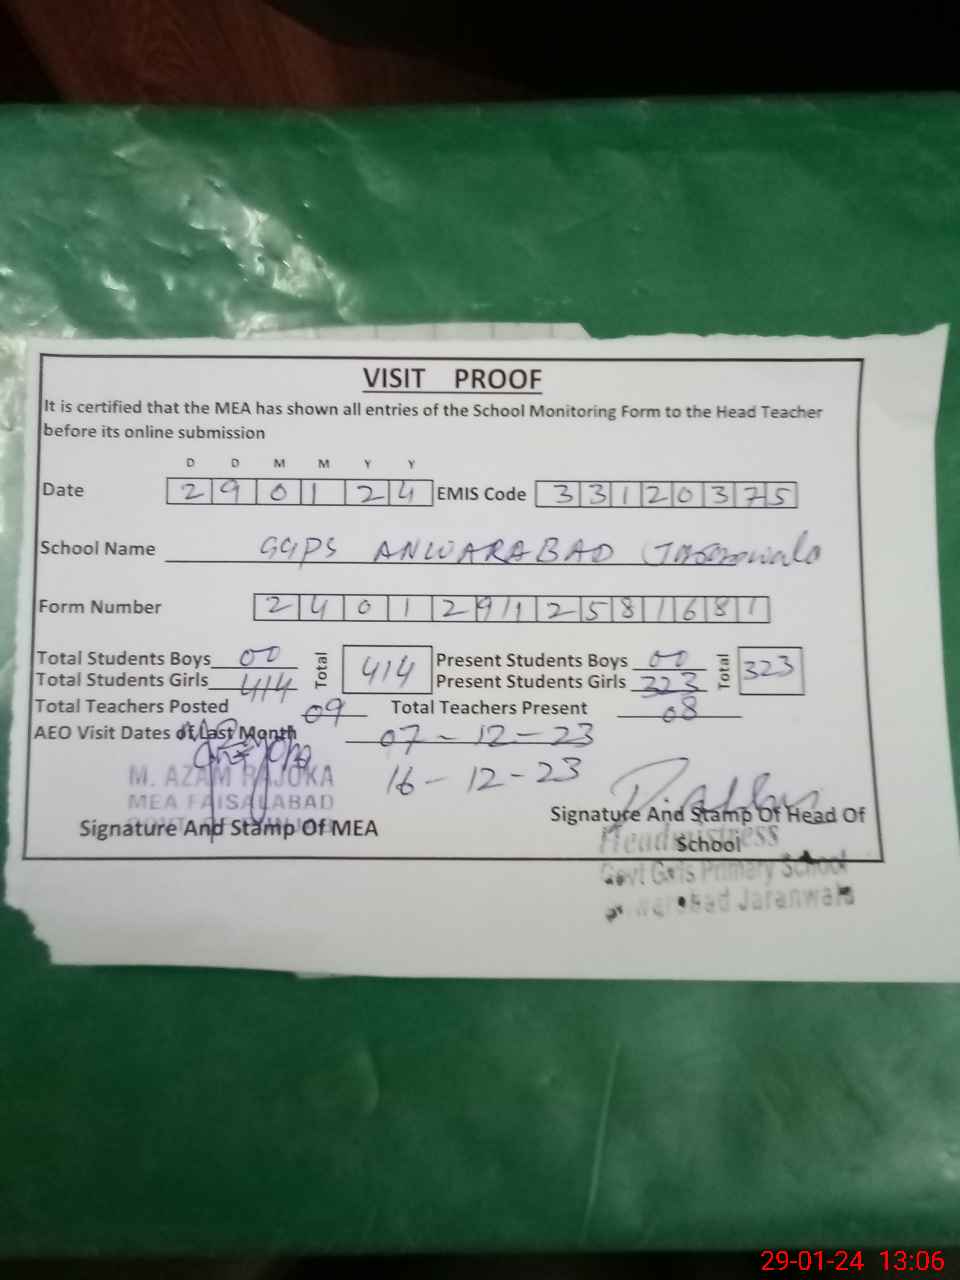 VISIT PROOF
It is certified that the MEA has shown all entries of the School Monitoring Form to the Head Teacher
before its online submission
D D M M Y Y
Date 290124 EMIS Code 33120375
School Name GGPS ANWARABAD
Form Number 24012911258 1681
Total Students Boys 00 Total 414 Present Students Boys 00 Total 323
Total Students Girls 414 Present Students Girls 323
Total Teachers Posted 09 Total Teachers Present 08
AEO Visit Dates of Last Month 07-12-23
16-12-23
M. AZAM RAJOKA
MEA FAISALABAD
Signature And Stamp Of MEA
Signature And Stamp Of Head Of
School
Headmistress
Govt Girls Primary School
Jaranwala
29-01-24 13:06